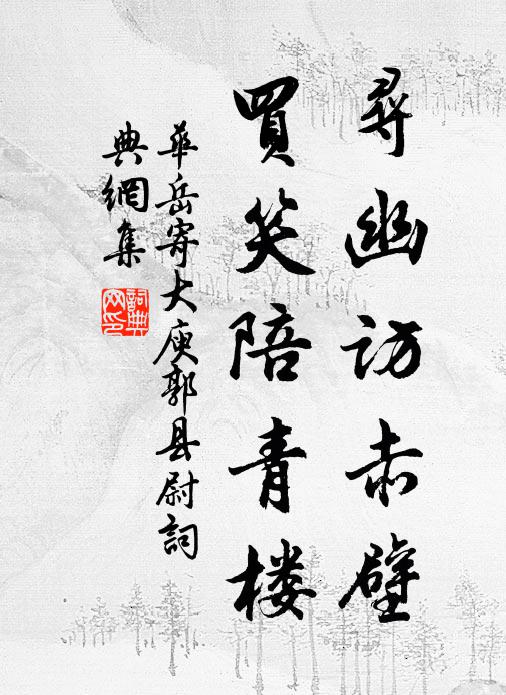 尋幽访赤壁
買笑陪青楼
華岳寄大庾郭县尉詞
典網集
詞典
网印